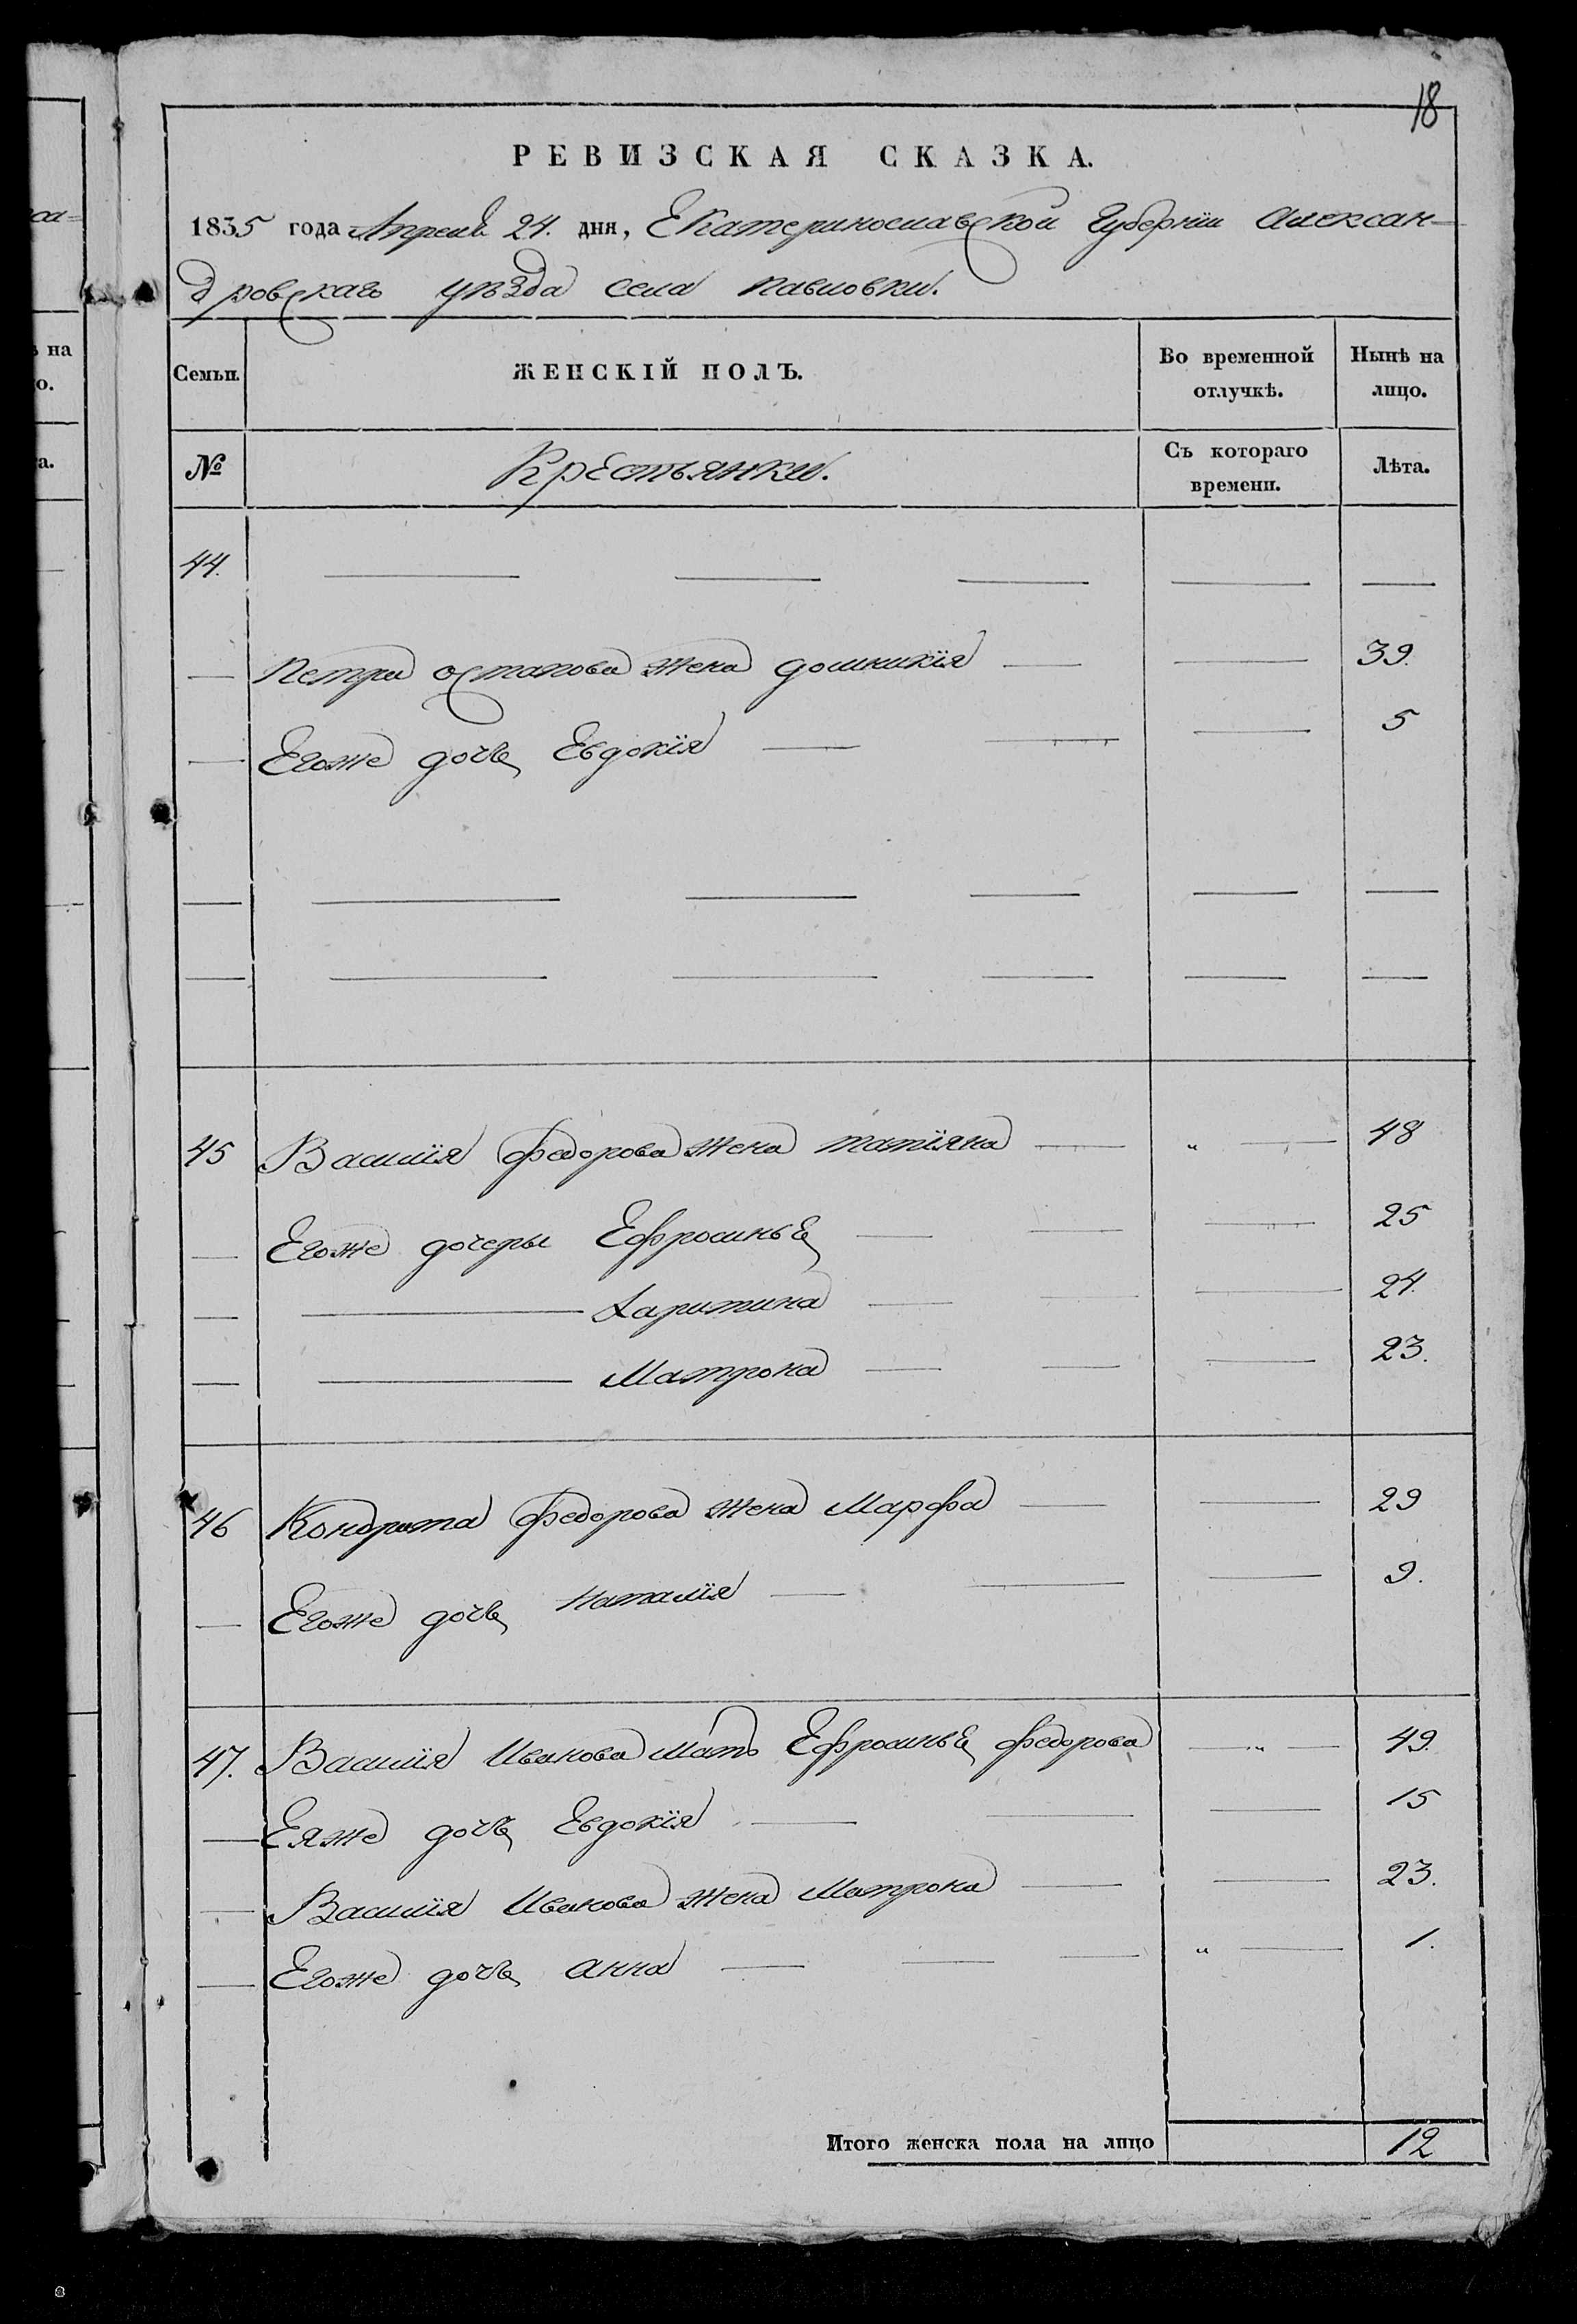 18
РЕВИЗСКАЯ СКАЗКА.
1835 года Апреля 24. дня, Екатеринославской Губерніи Алексан-
дровскаго уѣзда села Павловки.
Семьи. ЖЕНСКІЙ ПОЛЪ. Во временной отлучкѣ. Нынѣ на лицо.
№ Крестьянки. Съ котораго времени. Лѣта.
44.
Петра Остапова жена Домникія 39.
Егоже дочь Евдокія 5
45 Василія Федорова жена Татіяна " 48
Егоже дочеры Ефросинья 25
Харитина 24.
Матрона 23.
46 Кондрата Федорова жена Марфа 29
Егоже дочь Наталія 9.
47. Василія Иванова мать Ефросинья Федорова " 49.
Еяже дочь Евдокія 15
Василія Иванова жена Матрона 23.
Егоже дочь Анна " 1.
Итого женска пола на лицо 12
на
о.
а.